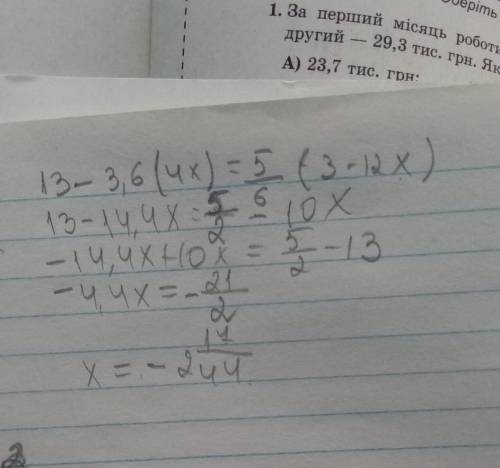 беріть
1. За перший місяць роботи
другий — 29,3 тис. грн. Як
А) 23,7 тис. грн;
13 - 3,6(4x) = 5/6 (3 - 12x)
13 - 14,4x = 5/2 - 10x
-14,4x + 10x = 5/2 - 13
-4,4x = -21/2
x = -2 17/44
2